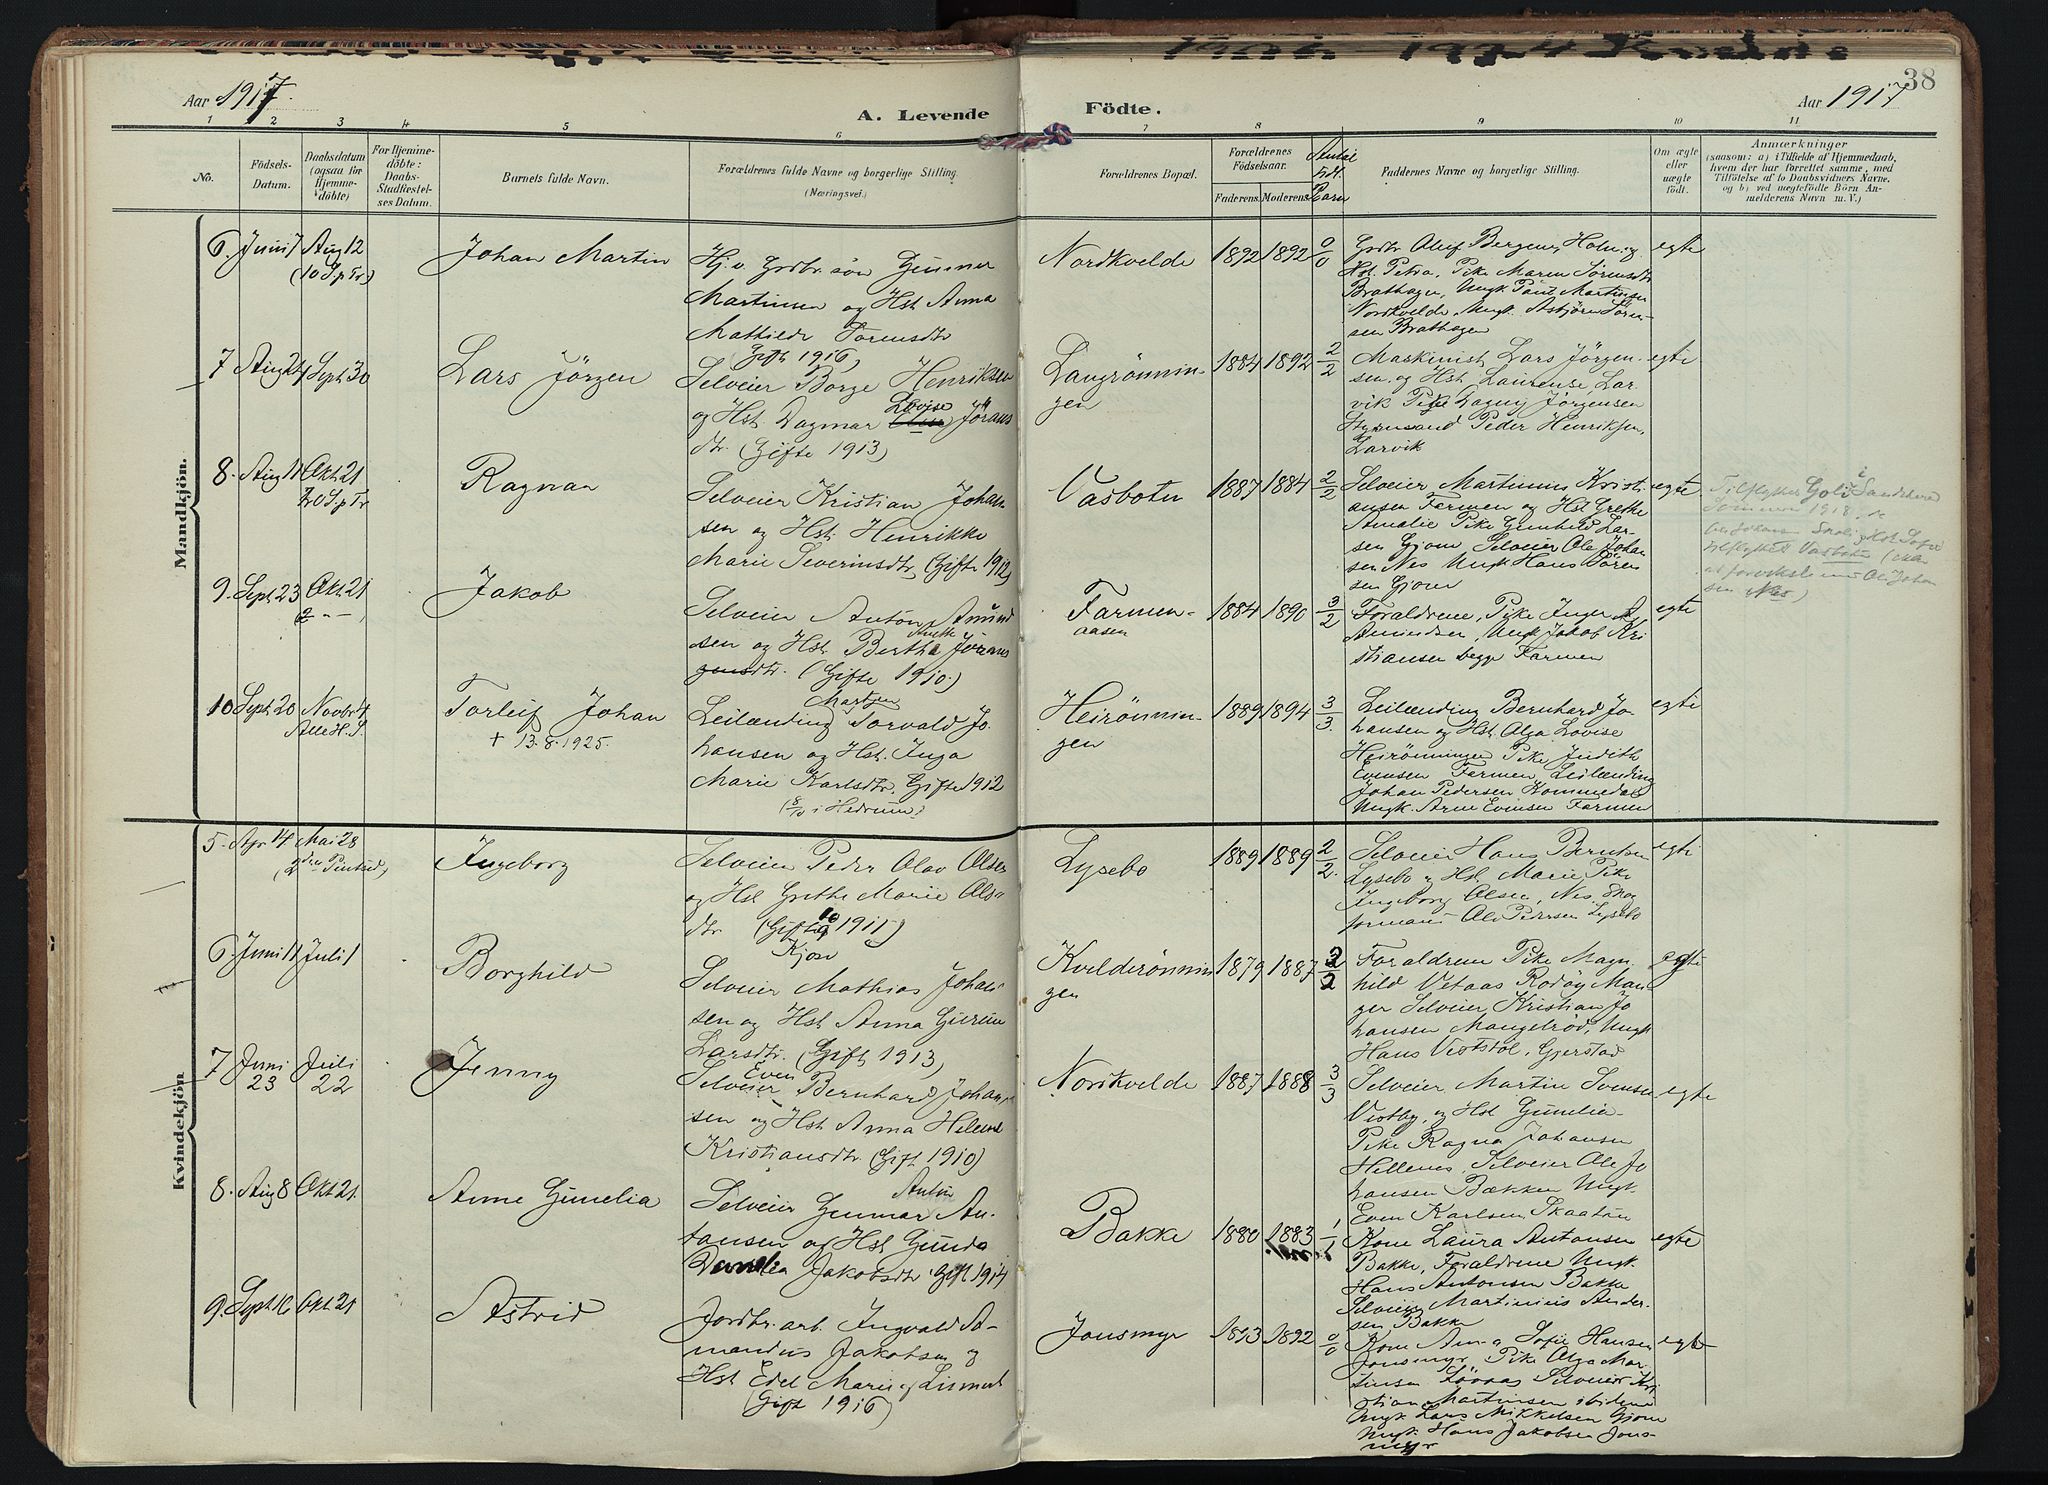 38
Aar 1917.
A. Levende
Födte.
Aar 1917
1 2 3 4 5 6 7 8 9 10 11
No.
Födsels-
Datum.
Daabsdatum
(ogsaa for
Hjemme-
döbte)
For Hjemme-
döbte:
Daabs-
Stadfæstel-
ses Datum.
Barnets fulde Navn.
Forældrenes fulde Navne og borgerlige Stilling.
(Næringsvei.)
Forældrenes Bopæl.
Forældrenes
Födselsaar.
Faderens. Moderens.
Antal
Barn
Faddernes Navne og borgerlige Stilling.
Om ægte
eller
uægte
födt.
Anmærkninger
(saasom: a) i Tilfælde af Hjemmedaab,
hvem der har forrettet samme, med
Tilföielse af to Daabsvidners Navne.
og b) ved uægtefödte Börn An-
melderens Navn m. V.)
Mandkjön.
6. Juni 7 Aug 12
(10 S. p Tr)
Johan Martin
Hj. v. Grdbr. søn Gunnar
Martinsen og Hst. Anna
Mathilde Torensdtr
Gift 1916)
Nordkvelde
1892 1892 0/0
Grdbr. Oluf Bergene, Holm og
Hst. Petra, Pike Maren Sörensdtr
Brathagen, Ungk. Paul Martinsen
Nordkvelde Ungk. Asbjörn Sören-
sen Brathagen
egte
7 Aug 24 Sept 30
Lars Jörgen
Selveier Borge Henriksen
og Hst Dagmar Lovise Jörans
dtr. (Gifte 1913)
Langrönnin-
gen
1884 1892 2/2
Maskinist Lars Jörgen-
sen og Hst Laurense, Lar
vik Pige Dagny Jörgensen
Styrmand Peder Henriksen,
Larvik
egte
8. Aug 11 Okt 21
20 S. p Tr
Ragnar
Selveier Kristian Johan
sen og Hst. Henrikke
Marie Severinsdtr (Gifte 1912)
Vasbotn
1887 1884 2/2
Selveier Martinius Kristi
ansen Farmen og Hst Grethe
Amalie Pike Gunhild Lar-
sen Gjone Selveier Ole Johan
sen Nes Ungk Hans Sören
sen Gjone
egte
Sommeren 1918
Vasbotn
Nes)
9. Sept 23 Okt 21
Jakob
Selveier Anton Amund
sen og Hst. Bertha Jörans
gensdtr. (Gifte 1910)
Farmen-
aasen
1884 1890 3/2
Foraldrene, Pike Inger A
Amundsen, Ungk Jakob Kri
stiansen begge Farmen
egte
10 Sept 20 Novbr 4
Alle H. S.
Torleif Johan
+ 13.8.1925.
Martin
Leilænding Torvald Jo
hansen og Hst. Inga
Marie Karlsdtr. Gifte 1912
(8/10 i Hedrum)
Heirönnin-
gen
1889 1894 3/3.
Leilænding Bernhard Jo
hansen og Hst Olga Lovise
Heirönningen Pike Judith
Evensen Farmen, Leilænding
Johan Pedersen Kommedal
Ungk. Arne Evensen Farmen
egte
Kvindekjön
5. Apr 14 Mai 28
(2den Pintsed)
Ingeborg
Selveier Peder Olav Olsen
og Hst Grethe Marie Ols-
dtr. (Gift 1911)
Lysebo
1889 1889 2/2.
Selveier Hans Berntsen
Lysebo og Hst Marie Pike
Ingeborg Olsen, Nes. Skog
formann Ole Pedersen Lysebo
egte
6. Juni 11 Juli 1
Borghild
Kjose
Selveier Mathias Johan
sen og Hst Anna Gurine
Larsdtr. (Gift 1913)
Kvelderönnin
gen
1879 1887 2/2
Foraldrene Pike Magn
hild Vetaas Rodöy Man
ger Selveier Kristian Jo
hansen Mangelröd, Ungk
Hans Vestöl, Gjerstad
egte
7 Juni Juli
23 22
Jenny
Even
Selveier Bernhard Johan
sen og Hst Anna Helene
Kristiansdtr. (Gift 1910)
Nordkvelde
1887 1888 3/3
Selveier Martin Svensen
Vestby, og Hst Gunelie-
Pike Ragna Johansen
Hellenes, Selveier Ole Jo
hansen Bækken Ungk.
Even Karlsen Skaatun
egte
8. Aug 8 Okt 21.
Anne Gunelia
Anton
Selveier Gunnar An-
tonsen og Hst Gunda
Jakobsdtr. Gift 1914
Bakke
1880 1883 1/1
Kone Laura Antonsen
Bakke, Foraldrene Ungk.
Hans Antonsen Bakke
Selveier Martinius Ander-
sen Bakke
egte
9. Sept 16 Okt 21
Astrid
Jordbr. arb. Ingvald A-
mandus Jakobsen og
Hst Edel Marie
(Gift 1916)
Jonsmyr
1893 1892 0/0
Kone Anna Sofie Hansen
Jonsmyr, Pike Olga Mar-
tinsen Lövaas Selveier Kri
stian Martinsen ibidem
Ungk Lars Mikkelsen Gjone
Ungk. Hans Jakobsen Jons-
myr
egte